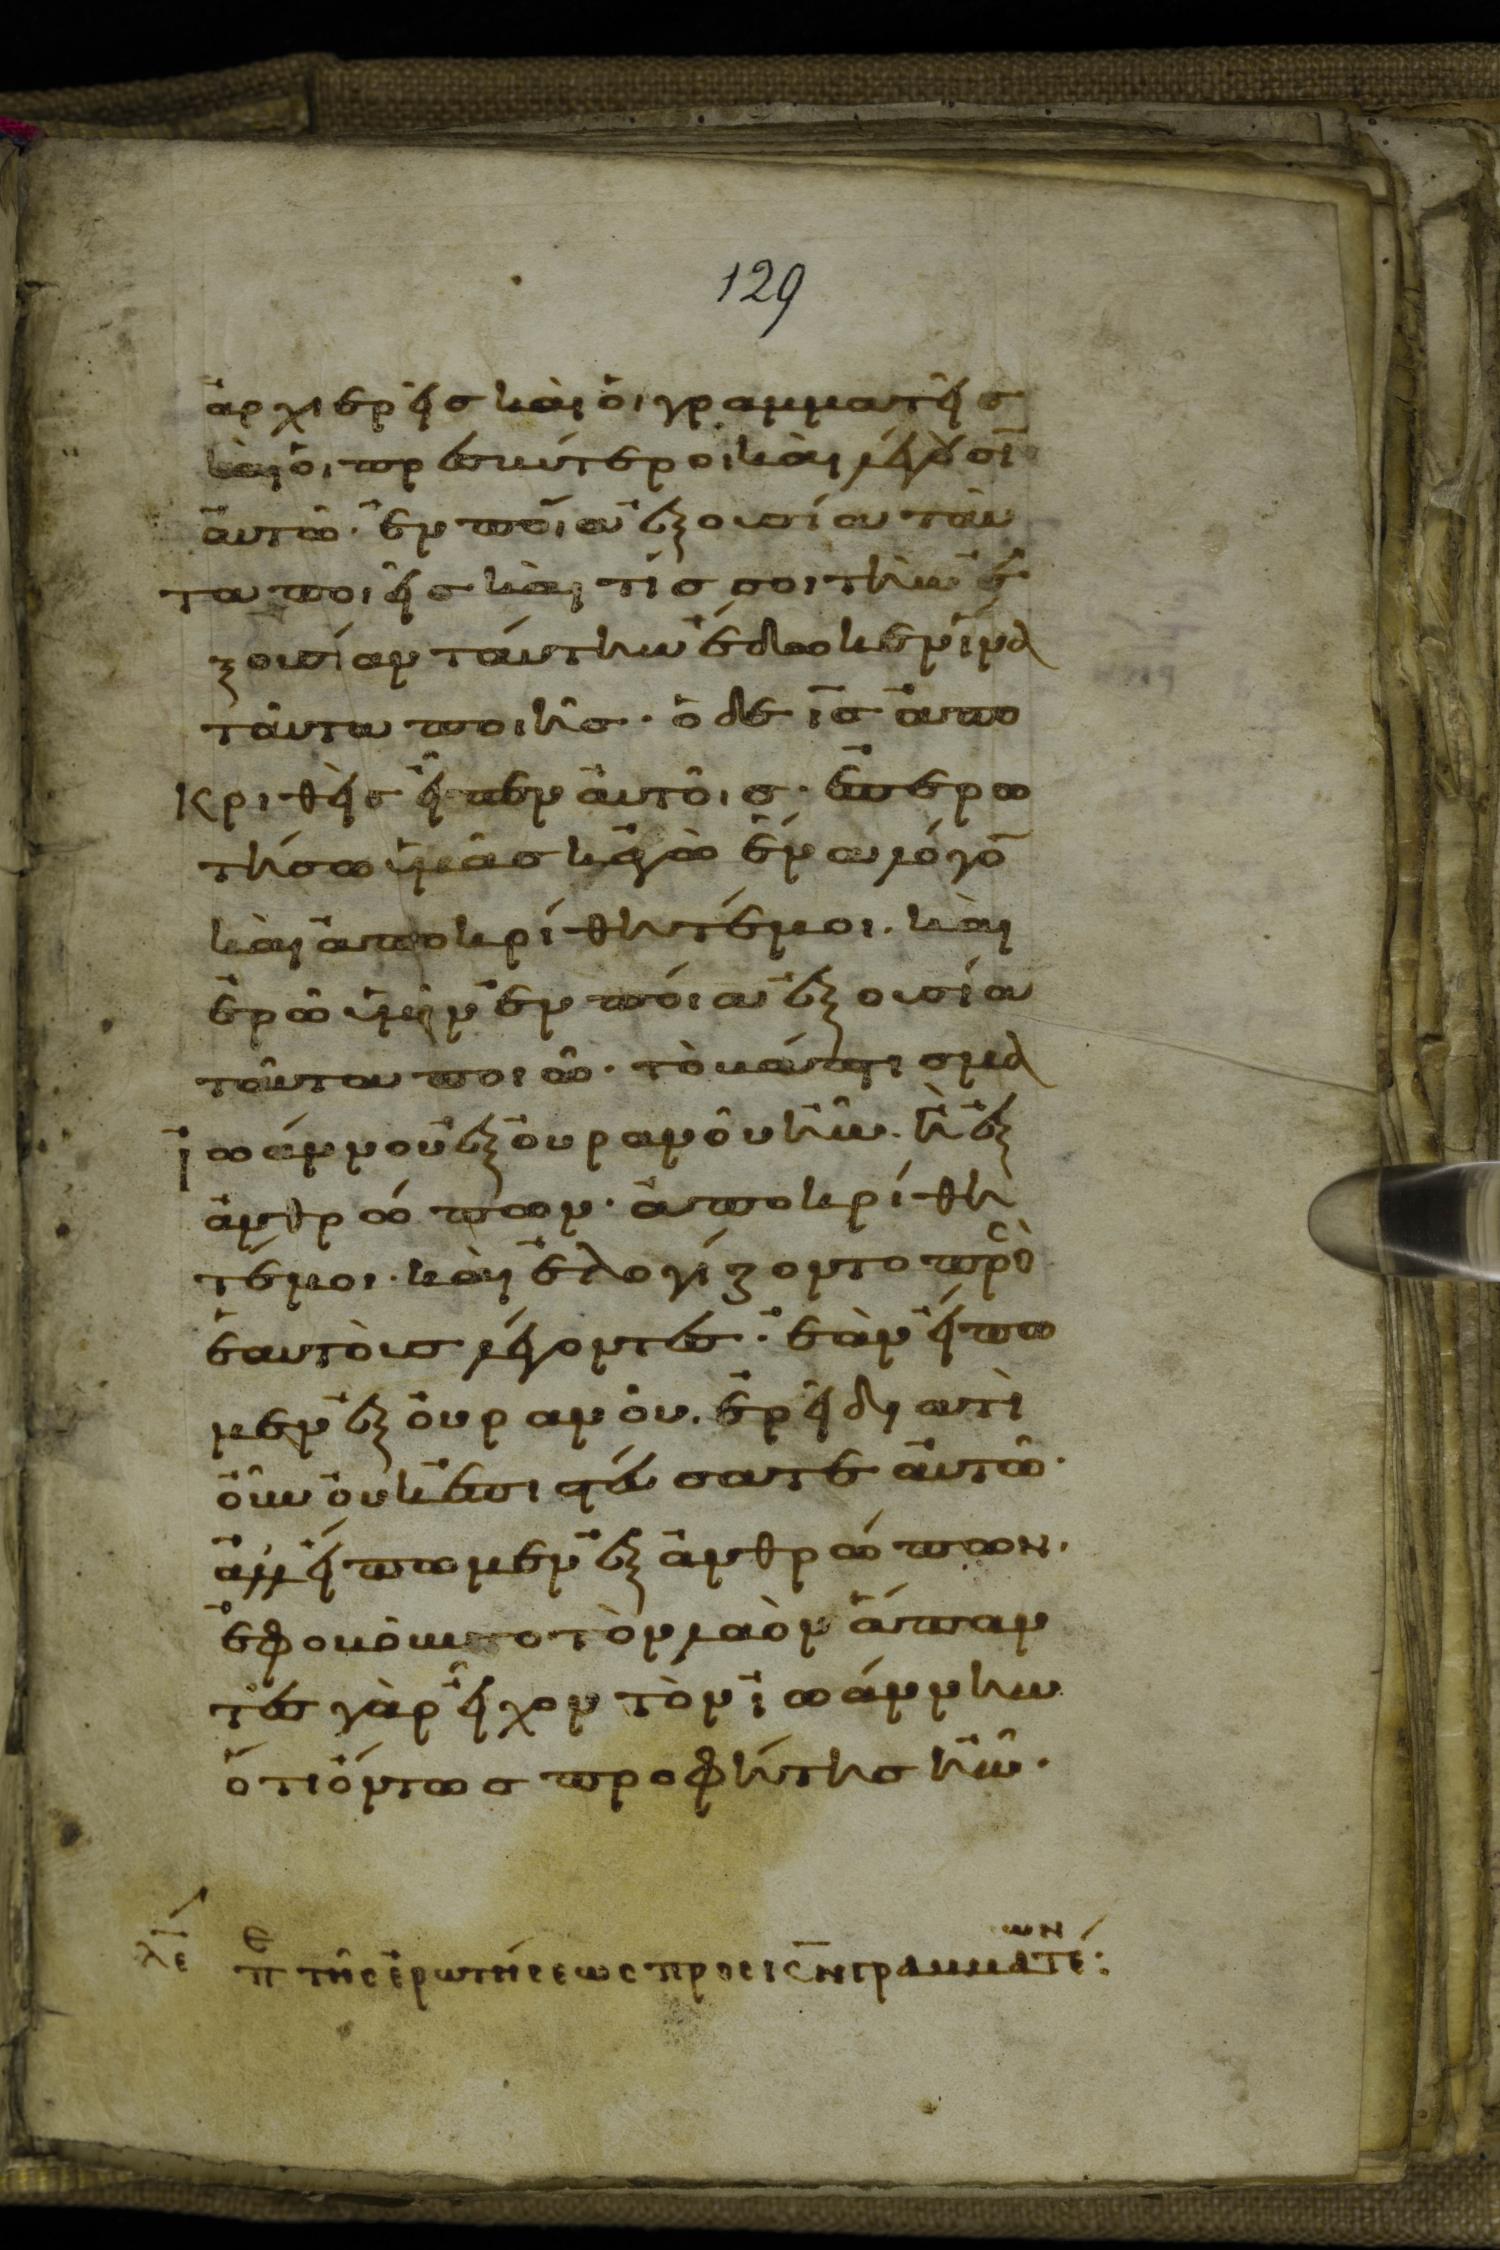 129
ἀρχιερεῖς καὶ οἱ γραμματεῖς
καὶ οἱ πρεσβύτεροι καὶ λέγουσῑ
αὐτῶ· ἐν ποία ἐξουσία ταῦ
τα ποιεῖς καὶ τίς σοι τὴν ἐ
ξουσίαν ταύτην ἔδωκεν ἵνα
ταῦτα ποιῆς· ὁ δὲ ῑς ἀπο
κριθεὶς εἶπεν αὐτοῖς· ἐπερω
τήσω ὑμᾶς κἀγὼ ἕνα λόγο̄
καὶ ἀποκρίθητέ μοι. καὶ
ἐρῶ ὑμῖν ἐν ποία ἐξουσία
ταῦτα ποιῶ· τὸ βάπτισμα
ϊωάννου ἐξ οὐρανοῦ ἦν. ἢ ἐξ
ἀνθρώπων· ἀποκρίθη
τέ μοι· καὶ ἐλογίζοντο πρὸς
ἑαυτοὺς λέγοντες· ἐὰν εἴπω
μεν ἐξ οὐρανοῦ. ἐρεῖ διατὶ
οὖν οὐκ ἐπιστεύσατε αὐτῶ·
ἀλλ εἴπωμεν ἐξ ἀνθρώπων.
ἐφοβοῦντο τὸν λαὸν ἅπαν
τες γὰρ εἶχον τὸν ϊωάννην
ὅτι ὄντως προφήτης ἦν·
λε πε τῆς ἐρωτήσεως προς ῑν γραμματέων: